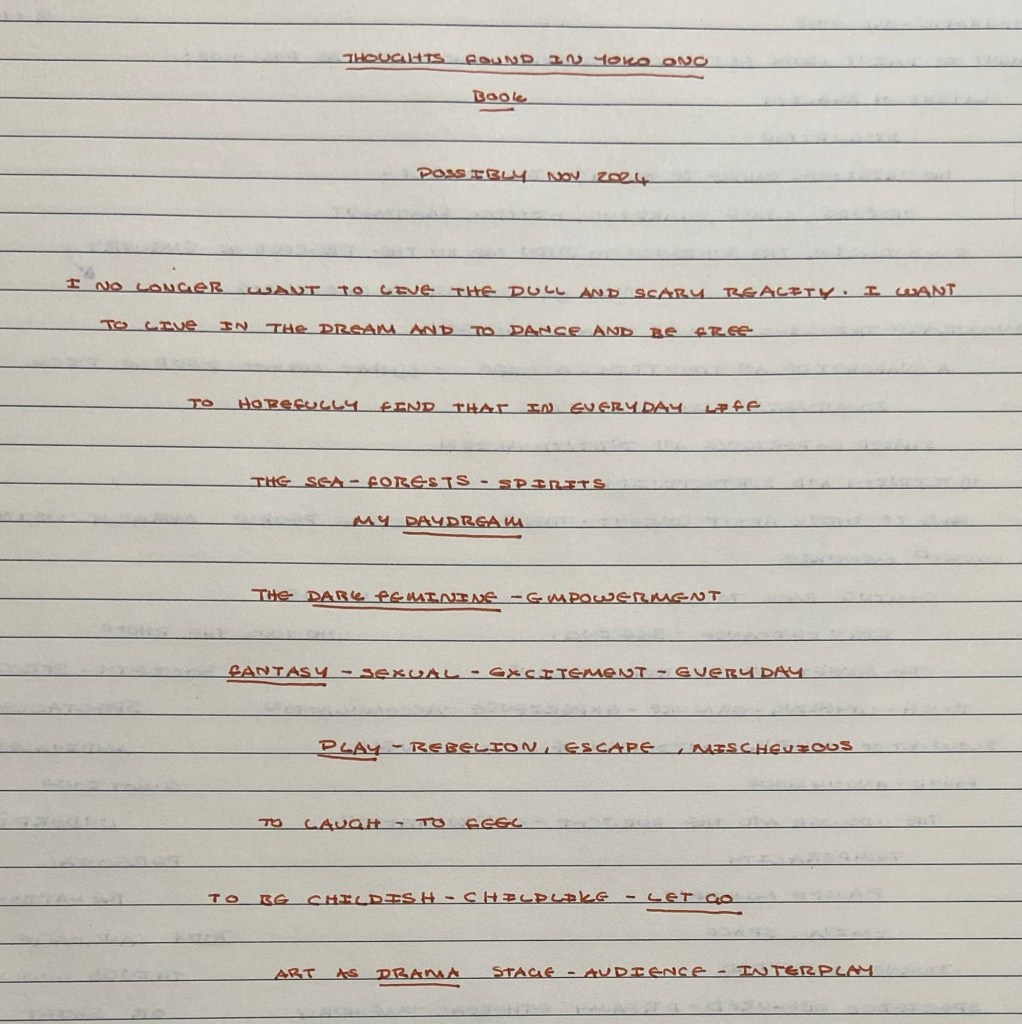 THOUGHTS FOUND IN YOKO ONO
BOOK
POSSIBLY NOV 2024
I NO LONGER WANT TO LIVE THE DULL AND SCARY REALITY. I WANT
TO LIVE IN THE DREAM AND TO DANCE AND BE FREE
TO HOPEFULLY FIND THAT IN EVERYDAY LIFE
THE SEA - FORESTS - SPIRITS
MY DAYDREAM
THE DARK FEMININE - EMPOWERMENT
FANTASY - SEXUAL - EXCITEMENT - EVERYDAY
PLAY - REBELION, ESCAPE , MISCHEVIOUS
TO LAUGH - TO FEEL
TO BE CHILDISH - CHILDLIKE - LET GO
ART AS DRAMA STAGE - AUDIENCE - INTERPLAY